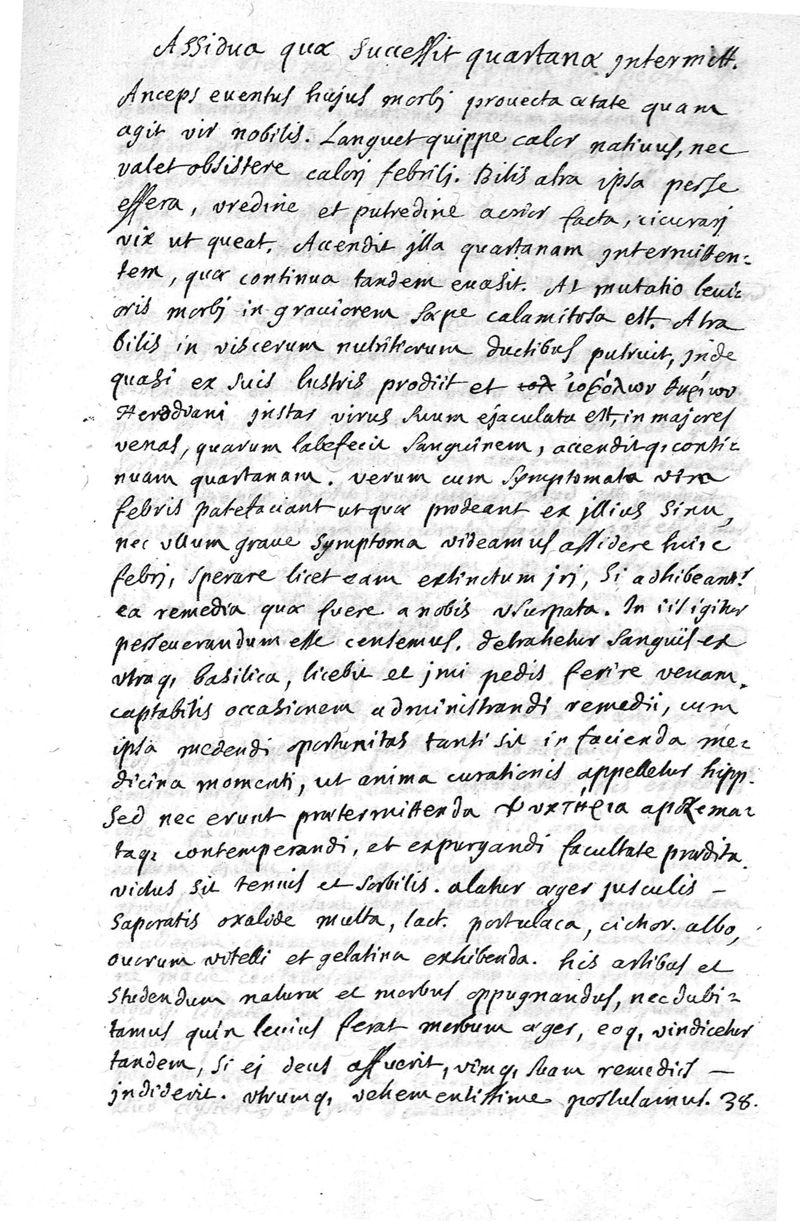 Assidua quæ successit quartanæ jntermitt.
Anceps euentus hujus morbj prouecta ætate quam
agit vir nobilis. Languet quippe calor natiuus, nec
valet obsistere calorj febrilj. Bilis atra ipsa perse
effera, vredine et putredine acrior facta, cicurarj
vix ut queat. Accendit jlla quartanam jntermitten=
tem, quæ continua tandem euasit. At mutatio leui=
oris morbj in grauiorem sæpe calamitosa est. Atra
bilis in viscerum nutritiorum ductibus putruit, jnde
quasi ex suis lustris prodiit et ἰοβόλων θηρίων
jnstar virus suum ejaculata est, in majores
venas, quarum labefecit sanguinem, accenditq, conti=
nuam quartanam. verum cum symptomata vtra
febris patefaciant ut quæ prodeant ex jllius sinu,
nec vllum graue symptoma videamus assidere huic
febrj, sperare licet eam extinctum jrj, si adhibeant.r
ea remedia quæ fuere a nobis vsurpata. In iis igitur
perseuerandum esse censemus. detrahetur sanguis ex
vtraq, basilica, licebit et jmi pedis ferire venam.
captabitis occasionem administrandi remedii, cum
ipsa medendi oportunitas tanti sit in facienda me=
dicina momenti, ut anima curationis appelletur hipp.
sed nec erunt prætermittenda ψυκτήρια apozema=
taq, contemperandi, et expurgandi facultate prædita.
victus sit tenuis et sorbilis. alatur æger jusculis –
saporatis oxalide multa, lact. portulaca, cichor. albo,
ouorum vitelli et gelatina exhibenda. his artibus et
studendum naturæ et morbus oppugnandus, nec dubi=
tamus quin leuius ferat morbum æger, eoq, vindicetur
tandem, si ej deus affuerit, vimq, suam remediis –
jndiderit. vtrumq, vehementissime postulamus. 38.